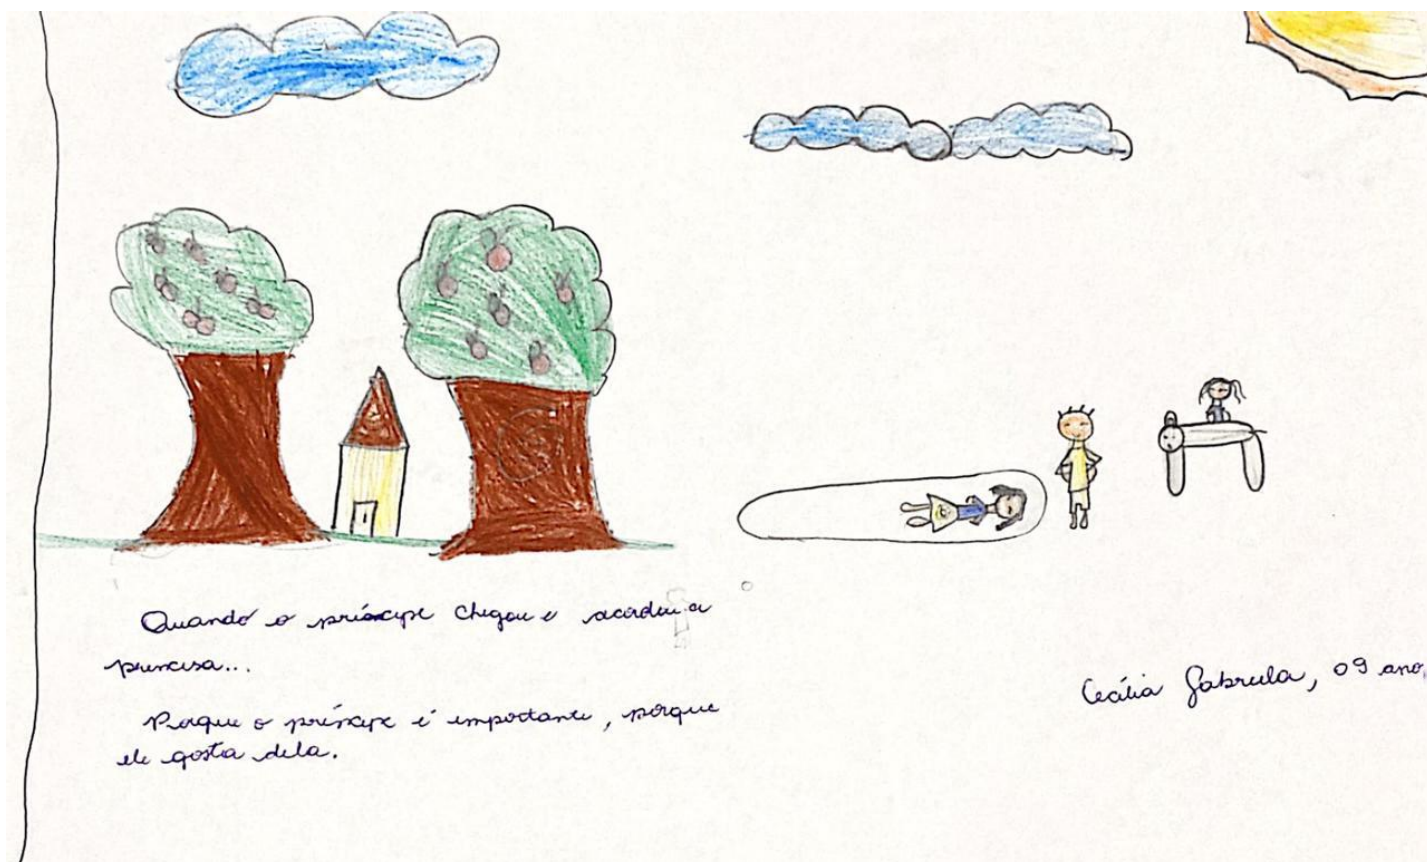 Quando o príncipe chegou e acordou a
princesa...
Porque o príncipe é importante, porque
ele gosta dela.
Cecília Gabriela, 09 ano